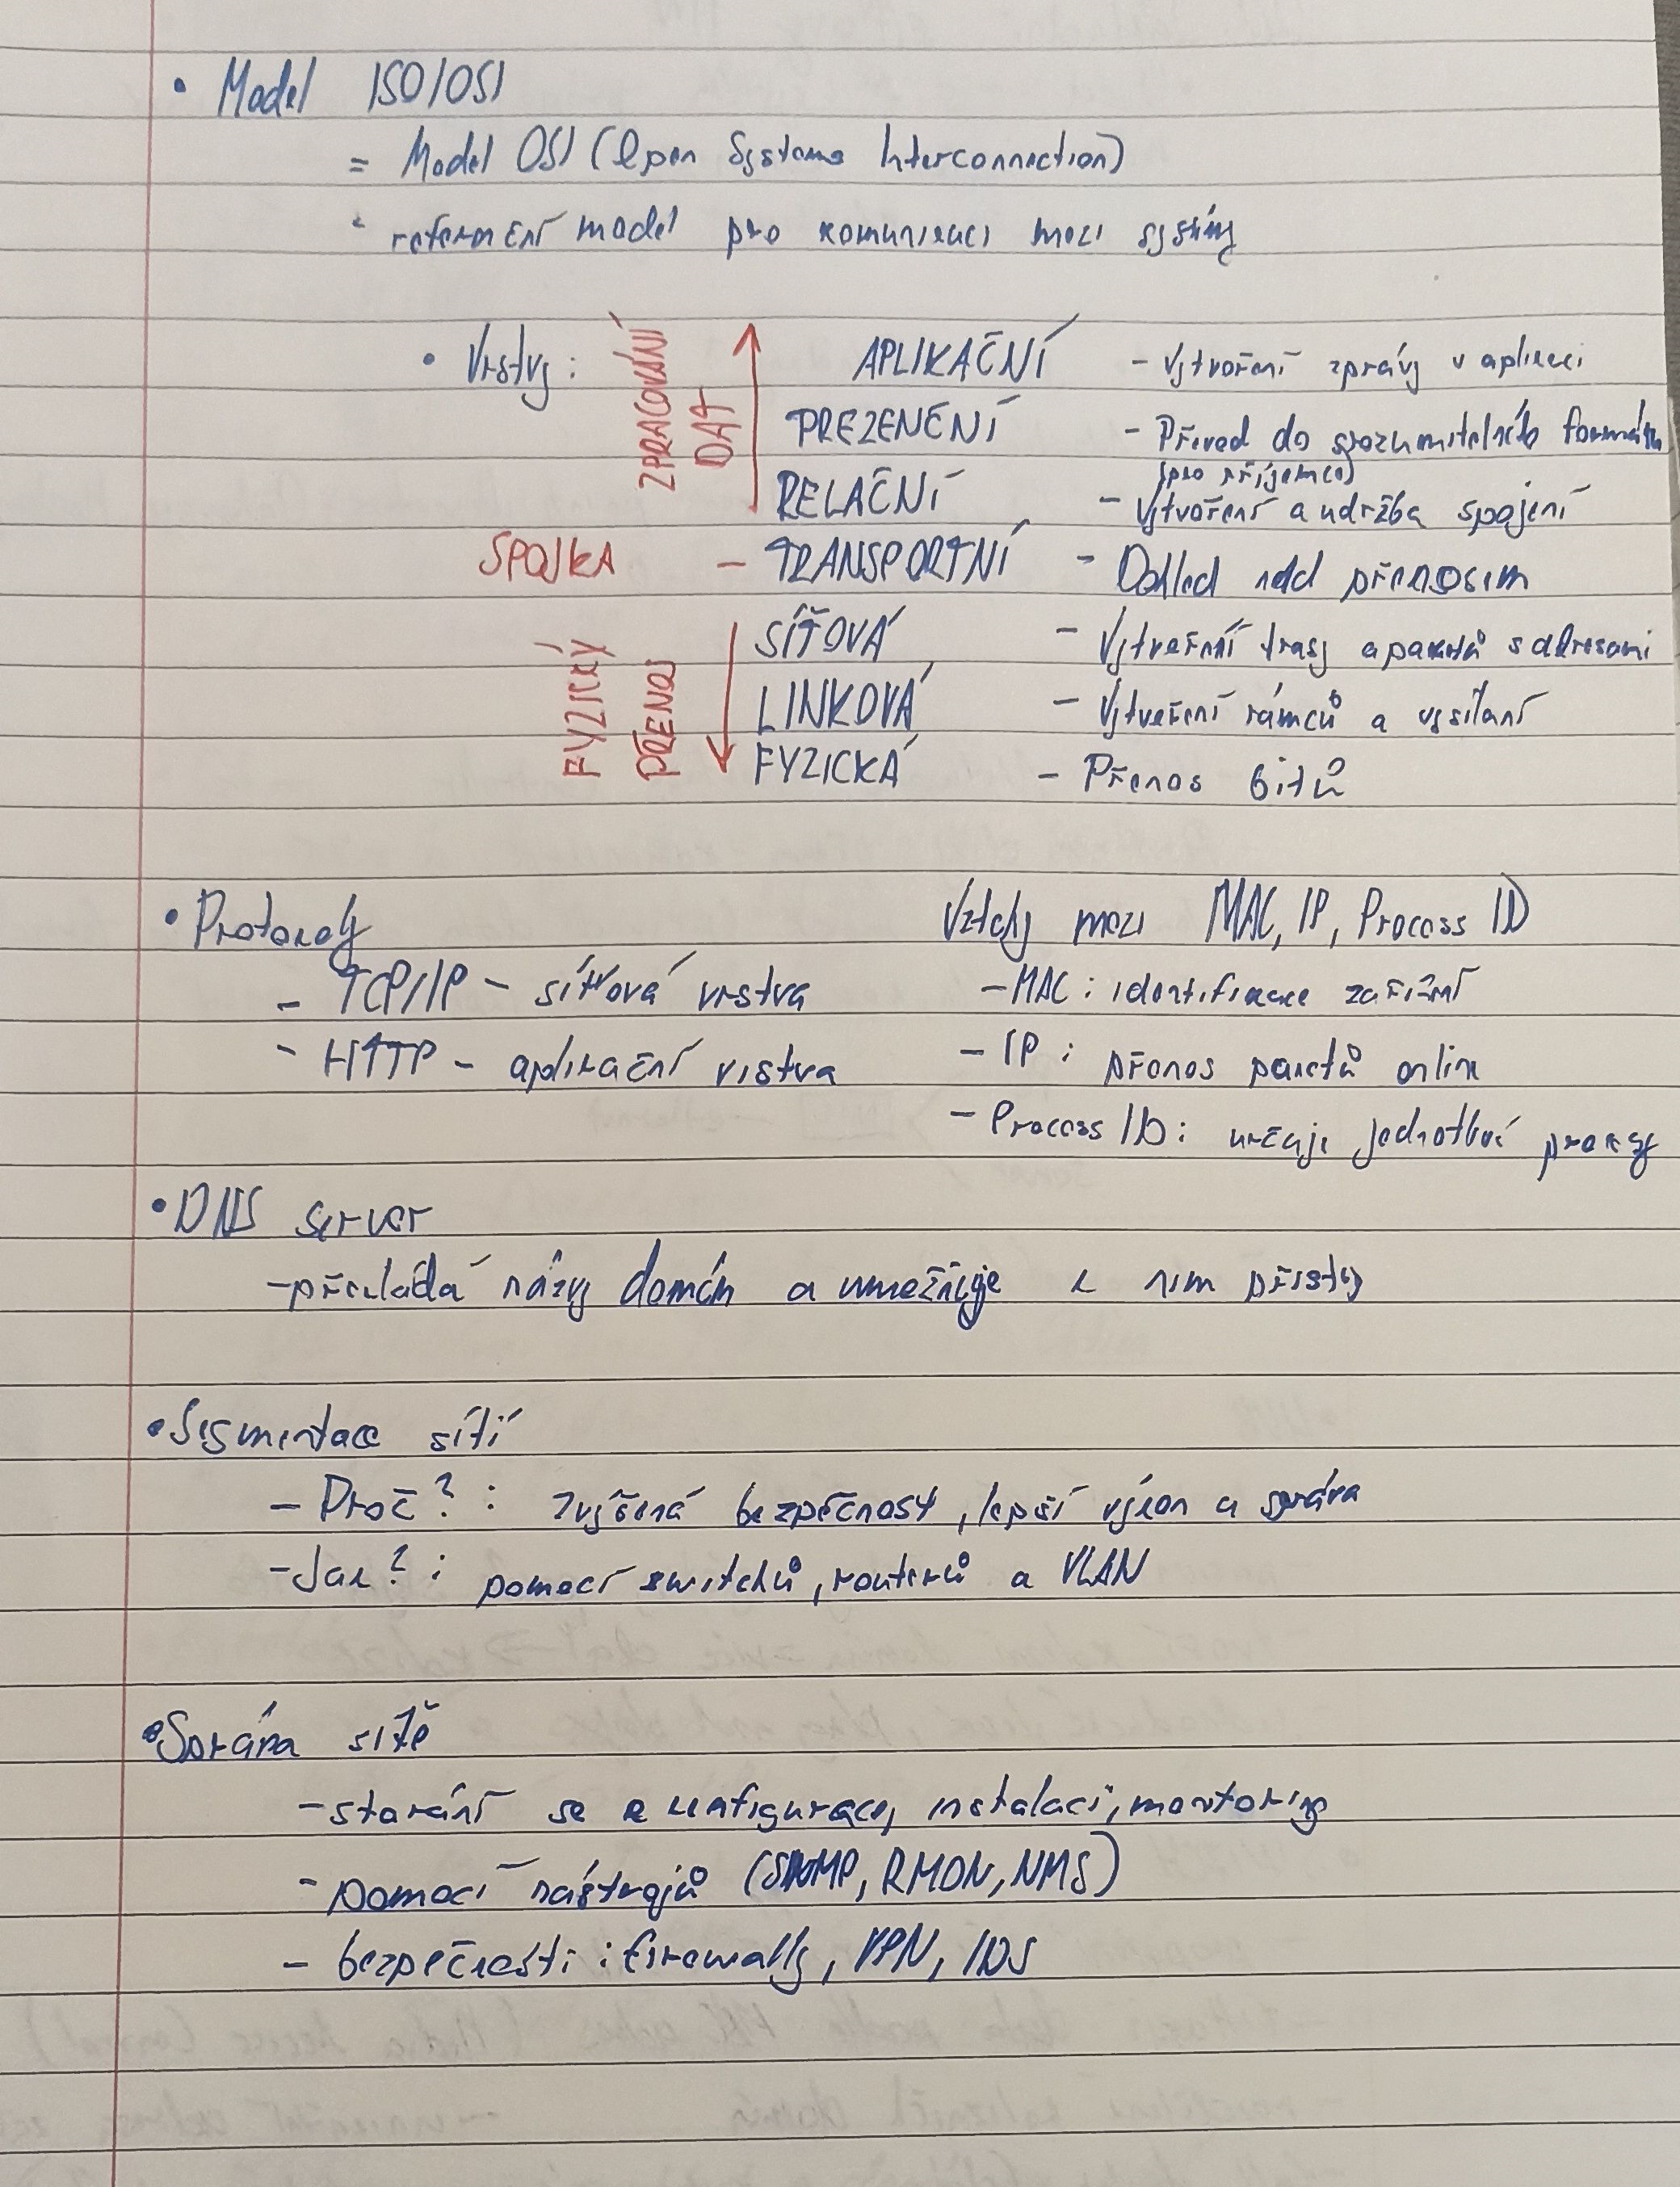 • Model ISO/OSI
= Model OSI (Open Systems Interconnection)
- referenční model pro komunikaci mezi systémy
• Vrstvy:
ZPRACOVÁNÍ DAT
APLIKAČNÍ - Vytvoření zprávy v aplikaci
PREZENČNÍ - Převod do srozumitelného formátu
(pro příjemce)
RELAČNÍ - Vytvoření a udržba spojení
SPOJKA - TRANSPORTNÍ - Dohled nad přenosem
FYZICKÝ PŘENOS
SÍŤOVÁ - Vytvoření trasy a paketů s adresami
LINKOVÁ - Vytvoření rámců a vysílaní
FYZICKÁ - Přenos bitů
• Protokoly
- TCP/IP - síťová vrstva
- HTTP - aplikační vrstva
Vztahy mezi MAC, IP, Process ID
- MAC: identifikace zařízení
- IP: přenos paketů online
- Process ID: určuje jednotlivé procesy
• DNS server
- překládá názvy domén a umožňuje k nim přístup
• Segmentace sítí
- Proč?: zvýšená bezpečnost, lepší výkon a správa
- Jak?: pomocí switchů, routerů a VLAN
• Správa sítě
- staraní se o konfiguraci, instalaci, monitoring
- pomocí nástrojů (SNMP, RMON, NMS)
- bezpečnosti: firewally, VPN, IDS